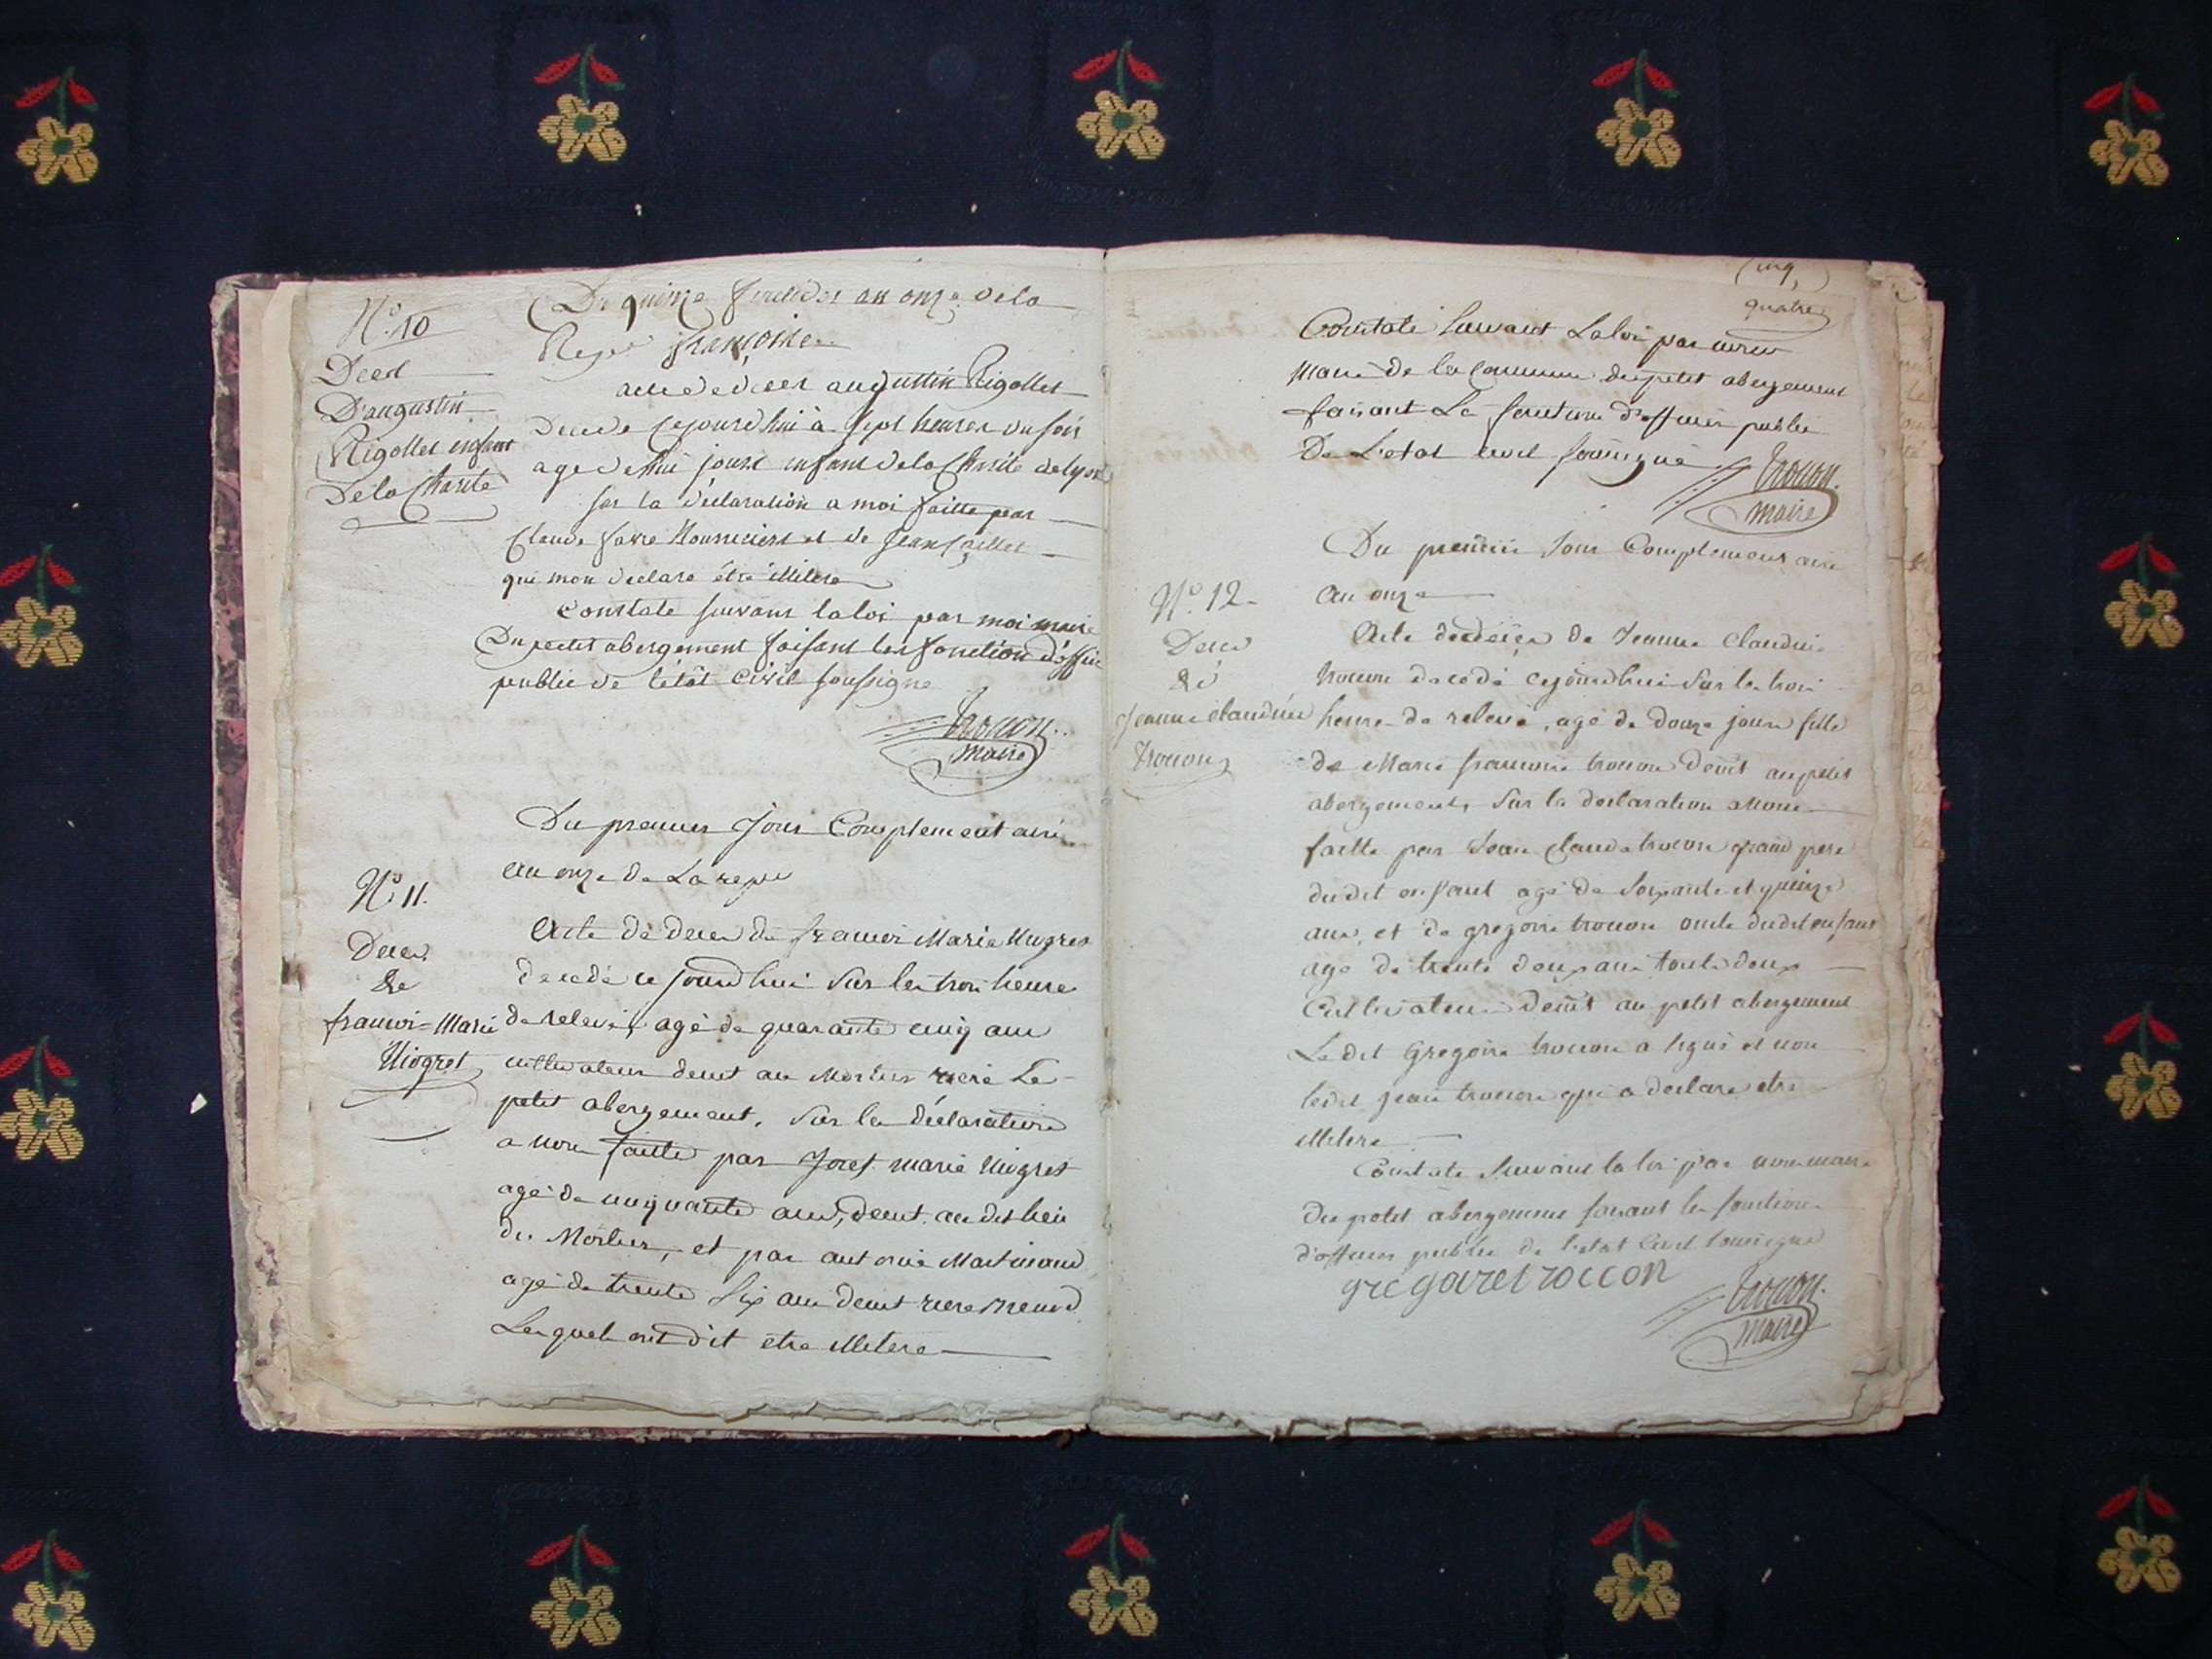 N.° 10
Deces
D'augustin
Rigollet enfant
De la Charité
Du quinze fructidor an onze de la
Repe françoise
acte de deces augustin Rigollet
Decede cejourdhui à sept heures du soir
age de huit jours enfant de la Charité de lyon
sur la déclaration a moi faitte par
Claude favre Nourricier et de Jean
qui mon declaré être illitere
Constate suivant la loi par moi maire
Du petit abergement faisant les fonction d'officie
public de l'état civil soussigne
trocon
maire
Du premier Jour Complementaire
an onze de La repe
N.° 11.
Deces
de
francoi=Marie
Niogret
Acte de deces de francois Marie Niogret
decedé ce jourdhui sur les trois heures
de relevé, agé de quarante cinq ans
cultivateur demt au Mortier riere Le
petit abergement, sur la déclaration
a nous faitte par Josef marie Niogret
agé de cinquante ans, demt au dit lieu
du Mortier, et par antoine Martinand
agé de trente six ans demt riere
Lesquels ont dit être illitere
cinq
quatre
Constaté suivant La loi par nous
Maire de la Commune du petit abergement
faisant Les fonctions d'officier public
De L'etat civil soussigné
trocon.
maire
Du premier Jour Complementaire
an onze
N.° 12
Deces
de
Jeanne claudine
trocon
Acte de deces de Jeanne Claudine
trocon decedé cejourdhui sur les trois
heures de relevé, agé de douze jours fille
de Marie francoise trocon demt au petit
abergement, sur la declaration a nous
faitte par Jean Claude trocon grand pere
dudit enfant agé de soixante et quinze
ans, et de gregoire trocon oncle dudit enfant
agé de trente deux ans tout deux
Cultivateurs demt au petit abergement
Le dit Gregoire trocon a signé et non
ledit Jean trocon qui a declaré etre
illitere
Constate suivant la loi par nous maire
du petit abergement faisant les fonctions
d'officier public de l'etat civil soussigné
gregoire trocon
trocon.
maire